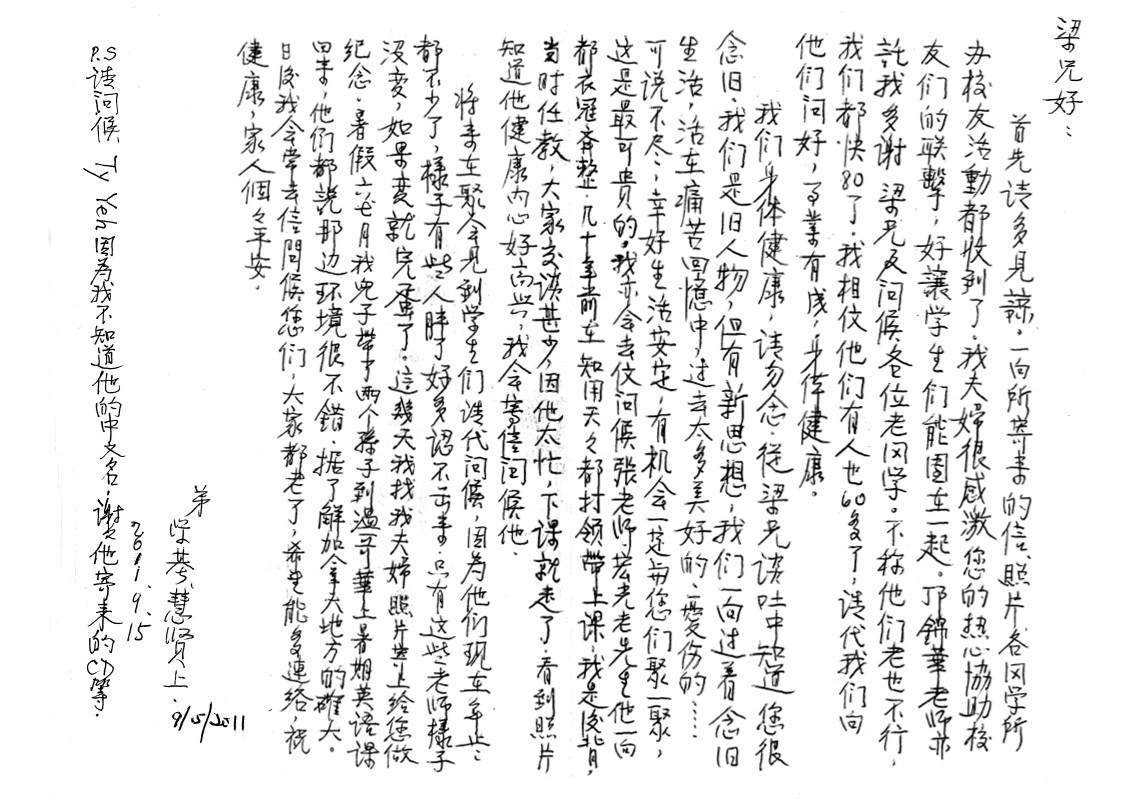 梁兄好：
首先请多見諒。一向所寄来的信、照片各同学所
办校友活動都收到了。我夫婦很感激您的热心協助校
友们的联繫，好讓学生们能团在一起。邝錦華老师亦
託我多谢 梁兄及问候各位老同学。不称他们老也不行，
我们都快80了。我相仪他们有人也60多了，请代我们向
他们问好，事業有成，身体健康。
我们身体健康，请勿念。從梁兄谈吐中知道您很
念旧。我们是旧人物，但有新思想，我们一向过着念旧
生活，活在痛苦回憶中，过去太多美好的、憂伤的……
可说不尽。幸好生活安定，有机会一定与您们聚一聚，
这是最可贵的。我亦会去仪问候張老师、宏光老先生他一向
都衣冠齐整。几十年前在知用天天都打领带上课，我是後背，
当时任教，大家交谈甚少，因他太忙，下课就走了。看到照片
知道他健康内心好高兴，我会寄信问候他。
将来在聚会見到学生们请代问候，因为他们现在年长，
都不少了，樣子有些人胖了好多認不出来。只有这些老师樣子
没变，如果变就完蛋了。這幾天我找我夫婦照片寄上给您做
纪念。暑假六七月我兒子带了两个孫子到温哥華上暑期英语课
回来，他们都説那边环境很不錯。据了解加拿大地方的確大。
日後我会常去信問候您们，大家都老了，希望能多連络，祝
健康，家人個々平安。
弟
学琴、慧贤上.
2011.9.15
9/15/2011
P.S 请问候 Ty Yeh 因為我不知道他的中文名，谢々他寄来的CD等.